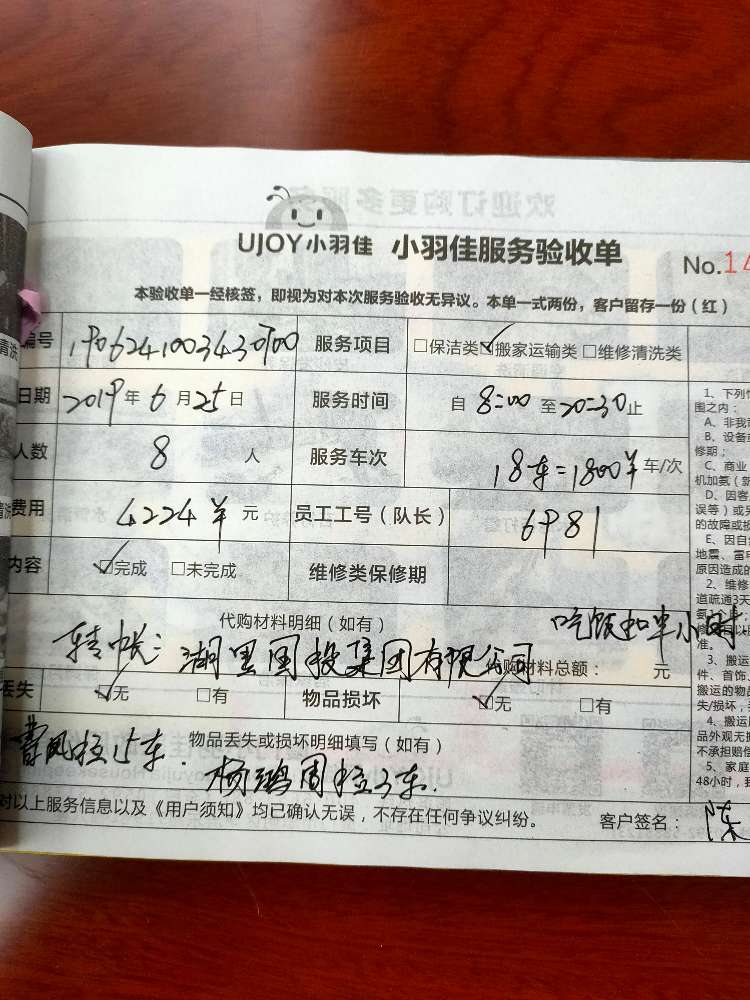 UJOY小羽佳 小羽佳服务验收单
No.14
本验收单一经核签，即视为对本次服务验收无异议。本单一式两份，客户留存一份（红）
编号 服务项目 □保洁类 ☑搬家运输类 □维修清洗类
日期 2019年6月25日 服务时间 自8:00至20:30止
人数 8人 服务车次 18车=1800¥车/次
费用 4224¥元 员工工号（队长） 6981
内容 ☑完成 □未完成 维修类保修期
代购材料明细（如有） 吃饭扣半小时
转帐：湖里国投集团有限公司 代购材料总额： 元
丢失 ☑无 □有 物品损坏 ☑无 □有
物品丢失或损坏明细填写（如有）
拉15车.
杨鸿周拉3车.
对以上服务信息以及《用户须知》均已确认无误，不存在任何争议纠纷。 客户签名： 陈
1、下列
围之内：
A、非我
B、设备
修期；
C、商业
机加氨（新
D、因客
误等）或
的故障或损
E、因自
地震、雷
原因造成的
2、维修
道疏通3天
准。
3、搬运
件、首饰、
搬运的物
失/损坏，
4、搬运
品外观无
不承担赔
5、家庭
48小时，
清洗